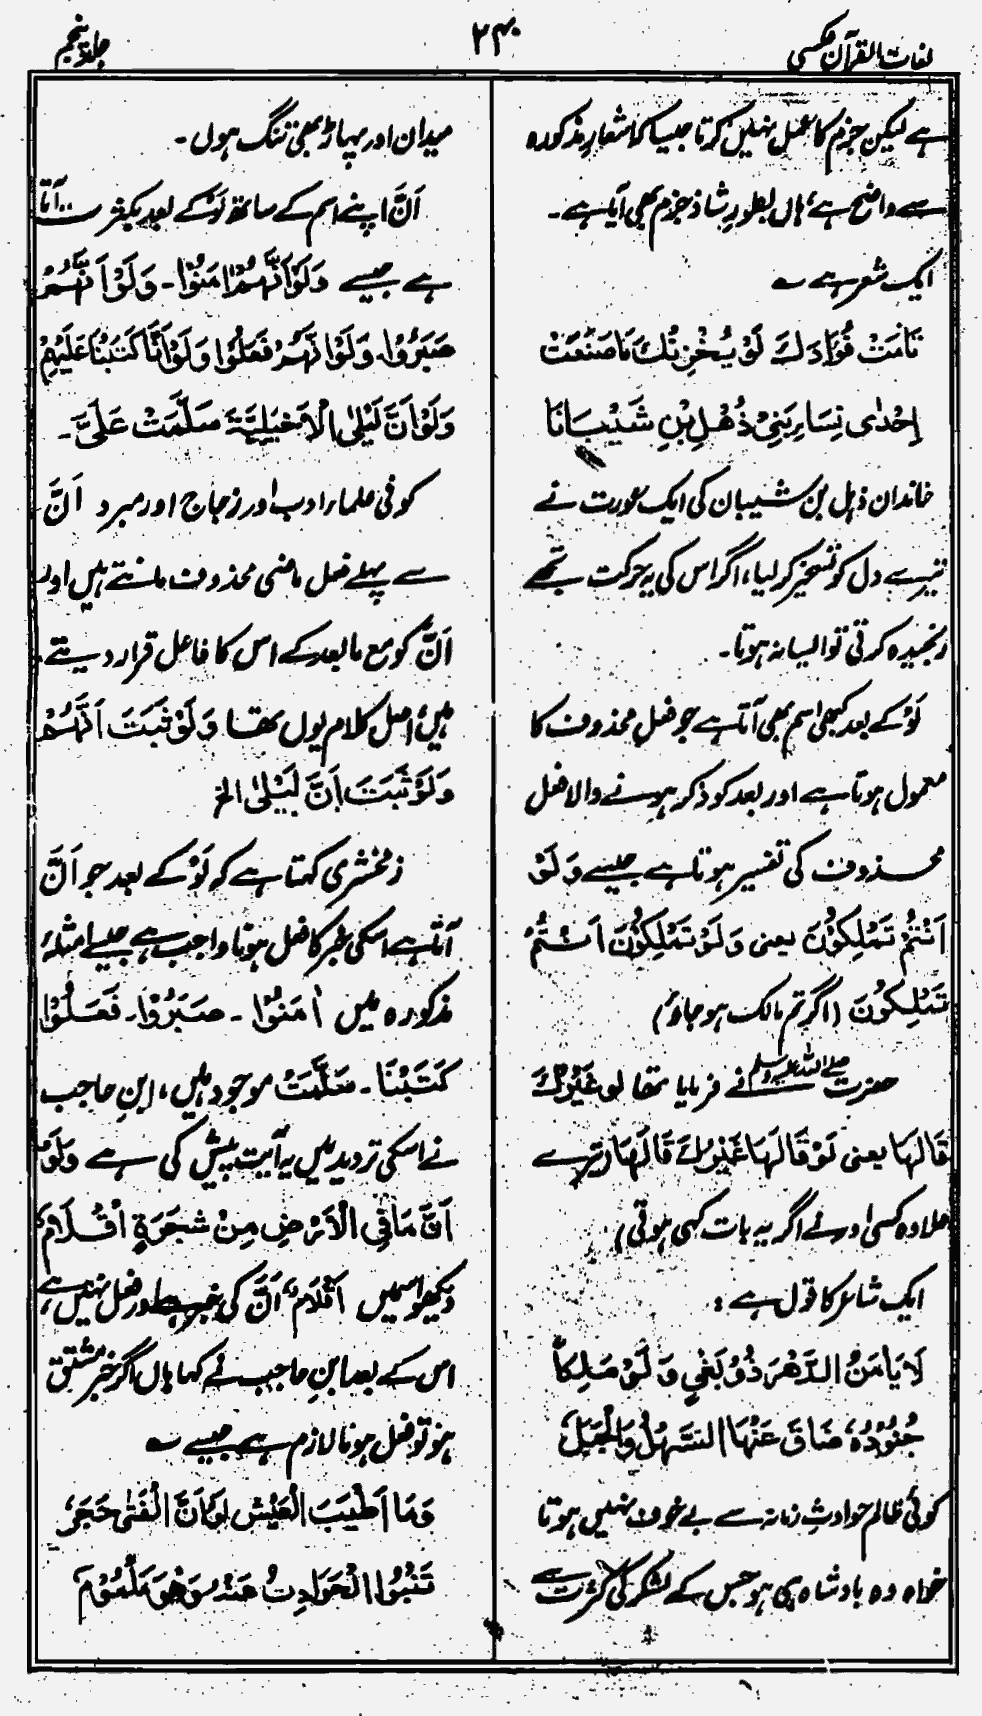 لغات القرآن عکسی
۲۴۰
جلد پنجم
ہے لیکن جزم کا عمل نہیں کرتا جیسا کہ اشعارِ مذکورہ
سے واضح ہے، ہاں بطورِ شاذ جزم بھی آیا ہے۔
ایک شعر ہے ؎
تَامَتْ فُؤَادَكَ لَوْ يُحْزِنْكَ مَا صَنَعَتْ
اِحْدٰى نِسَاءِ بَنِىْ ذُهْلِ بْنِ شَيْبَانَا
خاندان ذہل بن شیبان کی ایک عورت نے
تیرے دل کو تسخیر کر لیا، اگر اس کی یہ حرکت تجھے
رنجیدہ کرتی تو ایسا نہ ہوتا۔
لَوْ کے بعد کبھی اسم بھی آتا ہے جو فعل محذوف کا
معمول ہوتا ہے اور بعد کو ذکر ہونے والا فعل
محذوف کی تفسیر ہوتا ہے جیسے وَ لَوْ
اَنْتُمْ تَمْلِكُوْنَ یعنی وَ لَوْ تَمْلِكُوْنَ اَنْتُمْ
تَمْلِكُوْنَ (اگر تم مالک ہو جاؤ)
حضرت صلی اللہ علیہ وسلم نے فرمایا تھا لو غَيْرُكَ
قَالَهَا یعنی لَوْ قَالَهَا غَيْرُكَ قَالَهَا (تیرے
علاوہ کسی اور نے اگر یہ بات کہی ہوتی)
ایک شاعر کا قول ہے :
لَا يَأْمَنُ الدَّهْرَ ذُوْ بَغْيٍ وَ لَوْ مَلِكًا
جُنُوْدُهٗ ضَاقَ عَنْهَا السَّهْلُ وَالْجَبَلُ
کوئی ظالم حوادثِ زمانہ سے بے خوف نہیں ہوتا
خواہ وہ بادشاہ ہی ہو جس کے لشکر کی کثرت سے
میدان اور پہاڑ بھی تنگ ہوں۔
اَنَّ اپنے اسم کے ساتھ لَوْ کے بعد بکثرت آتا
ہے جیسے وَلَوْ اَنَّهُمْ اٰمَنُوْا۔ وَلَوْ اَنَّهُمْ
صَبَرُوْا۔ وَلَوْ اَنَّهُمْ فَعَلُوْا وَلَوْ اَنَّا كَتَبْنَا عَلَيْهِمْ
وَلَوْ اَنَّ لَيْلَى الْاَخْيَلِيَّةَ سَلَّمَتْ عَلَىَّ۔
کوفی علماءِ ادب اور زجاج اور مبرد اَنَّ
سے پہلے فعل ماضی محذوف مانتے ہیں اور
اَنَّ کو مع مابعد کے اس کا فاعل قرار دیتے
ہیں، اصل کلام یوں تھا وَ لَوْ ثَبَتَ اَنَّهُمْ
وَلَوْ ثَبَتَ اَنَّ لَيْلٰى الخ
زمخشری کہتا ہے کہ لَوْ کے بعد جو اَنَّ
آتا ہے اسکی خبر کا فعل ہونا واجب ہے جیسے امثلہ
مذکورہ میں اٰمَنُوْا ۔ صَبَرُوْا۔ فَعَلُوْا
كَتَبْنَا ۔ سَلَّمَتْ موجود ہیں، ابنِ حاجب
نے اسکی تردید میں یہ آیت پیش کی ہے وَلَوْ
اَنَّ مَا فِى الْاَرْضِ مِنْ شَجَرَةٍ اَقْلَامٌ
دیکھو اسمیں اَقْلَامٌ اَنَّ کی خبر ہے اور فعل نہیں ہے،
اس کے بعد ابنِ حاجب نے کہا ہاں اگر خبر مشتق
ہو تو فعل ہونا لازم ہے جیسے ؎
وَمَا اَطْيَبَ الْعَيْشَ لَوْ اَنَّ الْفَتٰى حَجَرٌ
تَنْبُوا الْحَوَادِثُ عَنْهُ وَهُوَ مَلْمُوْمٌ